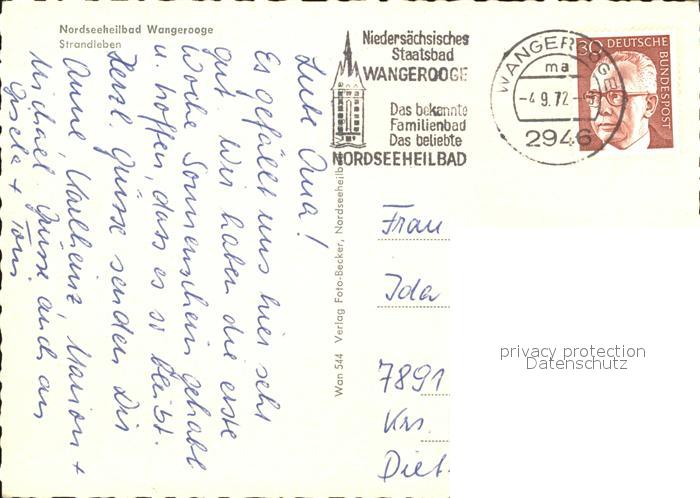 Nordseeheilbad Wangerooge
Strandleben
Niedersächsisches
Staatsbad
WANGEROOGE
Das bekannte
Familienbad
Das beliebte
NORDSEEHEILBAD
WANGEROOGE
ma
-4.9.72-
2946
30 DEUTSCHE
BUNDESPOST
Liebe Oma!
Es gefällt uns hier sehr
gut. Wir haben die erste
Woche Sonnenschein gehabt
u. hoffen, dass es so bleibt.
Herzl. Grüsse senden Dir
Anne, Karlheinz, Marion +
Michael. Grüsse auch an
Gisela + Toni.
Wan 544 Verlag Foto-Becker, Nordseeheilb
Frau
Ida
7891
Krs.
Diet.
privacy protection
Datenschutz